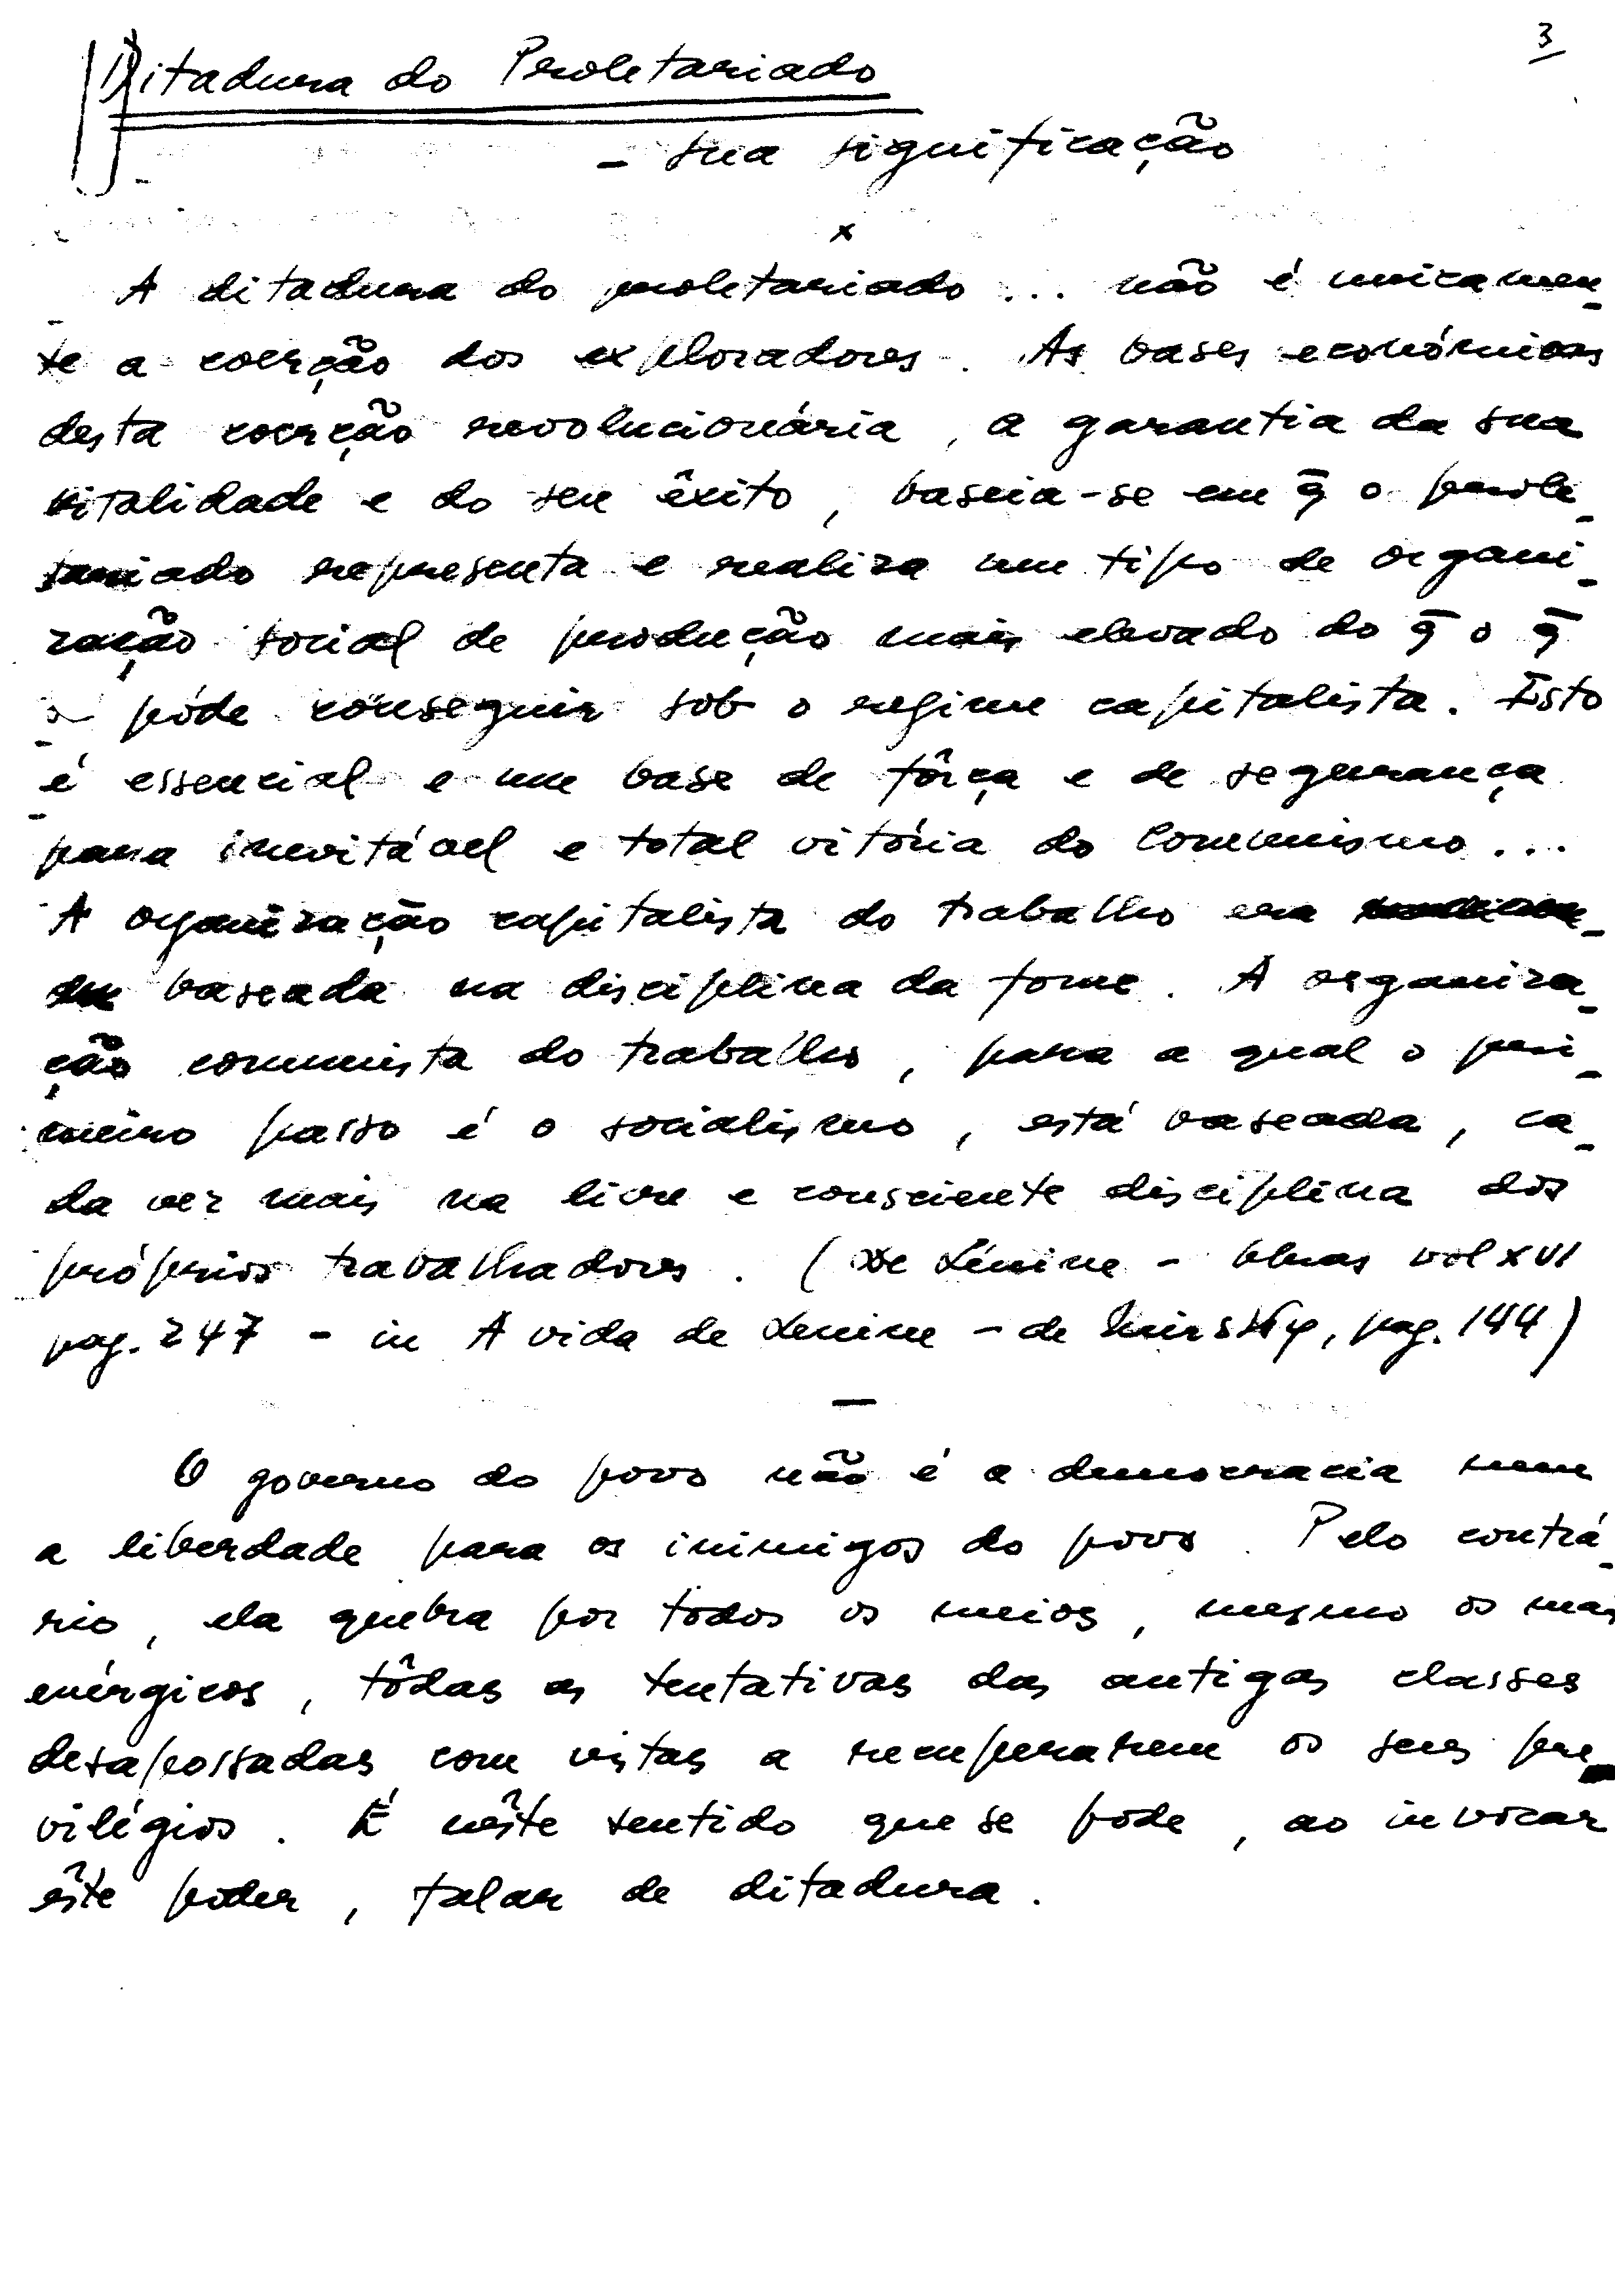 3
Ditadura do Proletariado
- sua significação
x
A ditadura do proletariado ... não é unicamen-
te a coerção dos exploradores. As bases económicas
desta coerção revolucionária, a garantia da sua
vitalidade e do seu êxito, baseia-se em q̄ o prole-
tariado representa e realiza um tipo de organi-
zação social de produção mais elevado do q̄ o q̄
póde conseguir sob o regime capitalista. Isto
é essencial e um base de fôrça e de segurança
para inevitável e total vitória do Comunismo ...
A organização capitalista do trabalho era
baseada na disciplina da fome. A organiza-
ção comunista do trabalho, para a qual o pri-
meiro passo é o socialismo, está baseada, ca-
da vez mais na livre e consciente disciplina dos
próprios trabalhadores. (De Lénine - Obras vol XVI
pag. 247 - in A vida de Lenine - de Mirsky, pag. 144)
—
O governo do povo não é a democracia nem
a liberdade para os inimigos do povo. Pelo contrá-
rio, ela quebra por todos os meios, mesmo os mais
enérgicos, tôdas as tentativas das antigas classes
desapossadas com vistas a recuperarem os seus pre-
vilégios. É nêste sentido que se pode, ao invocar
êste poder, falar de ditadura.